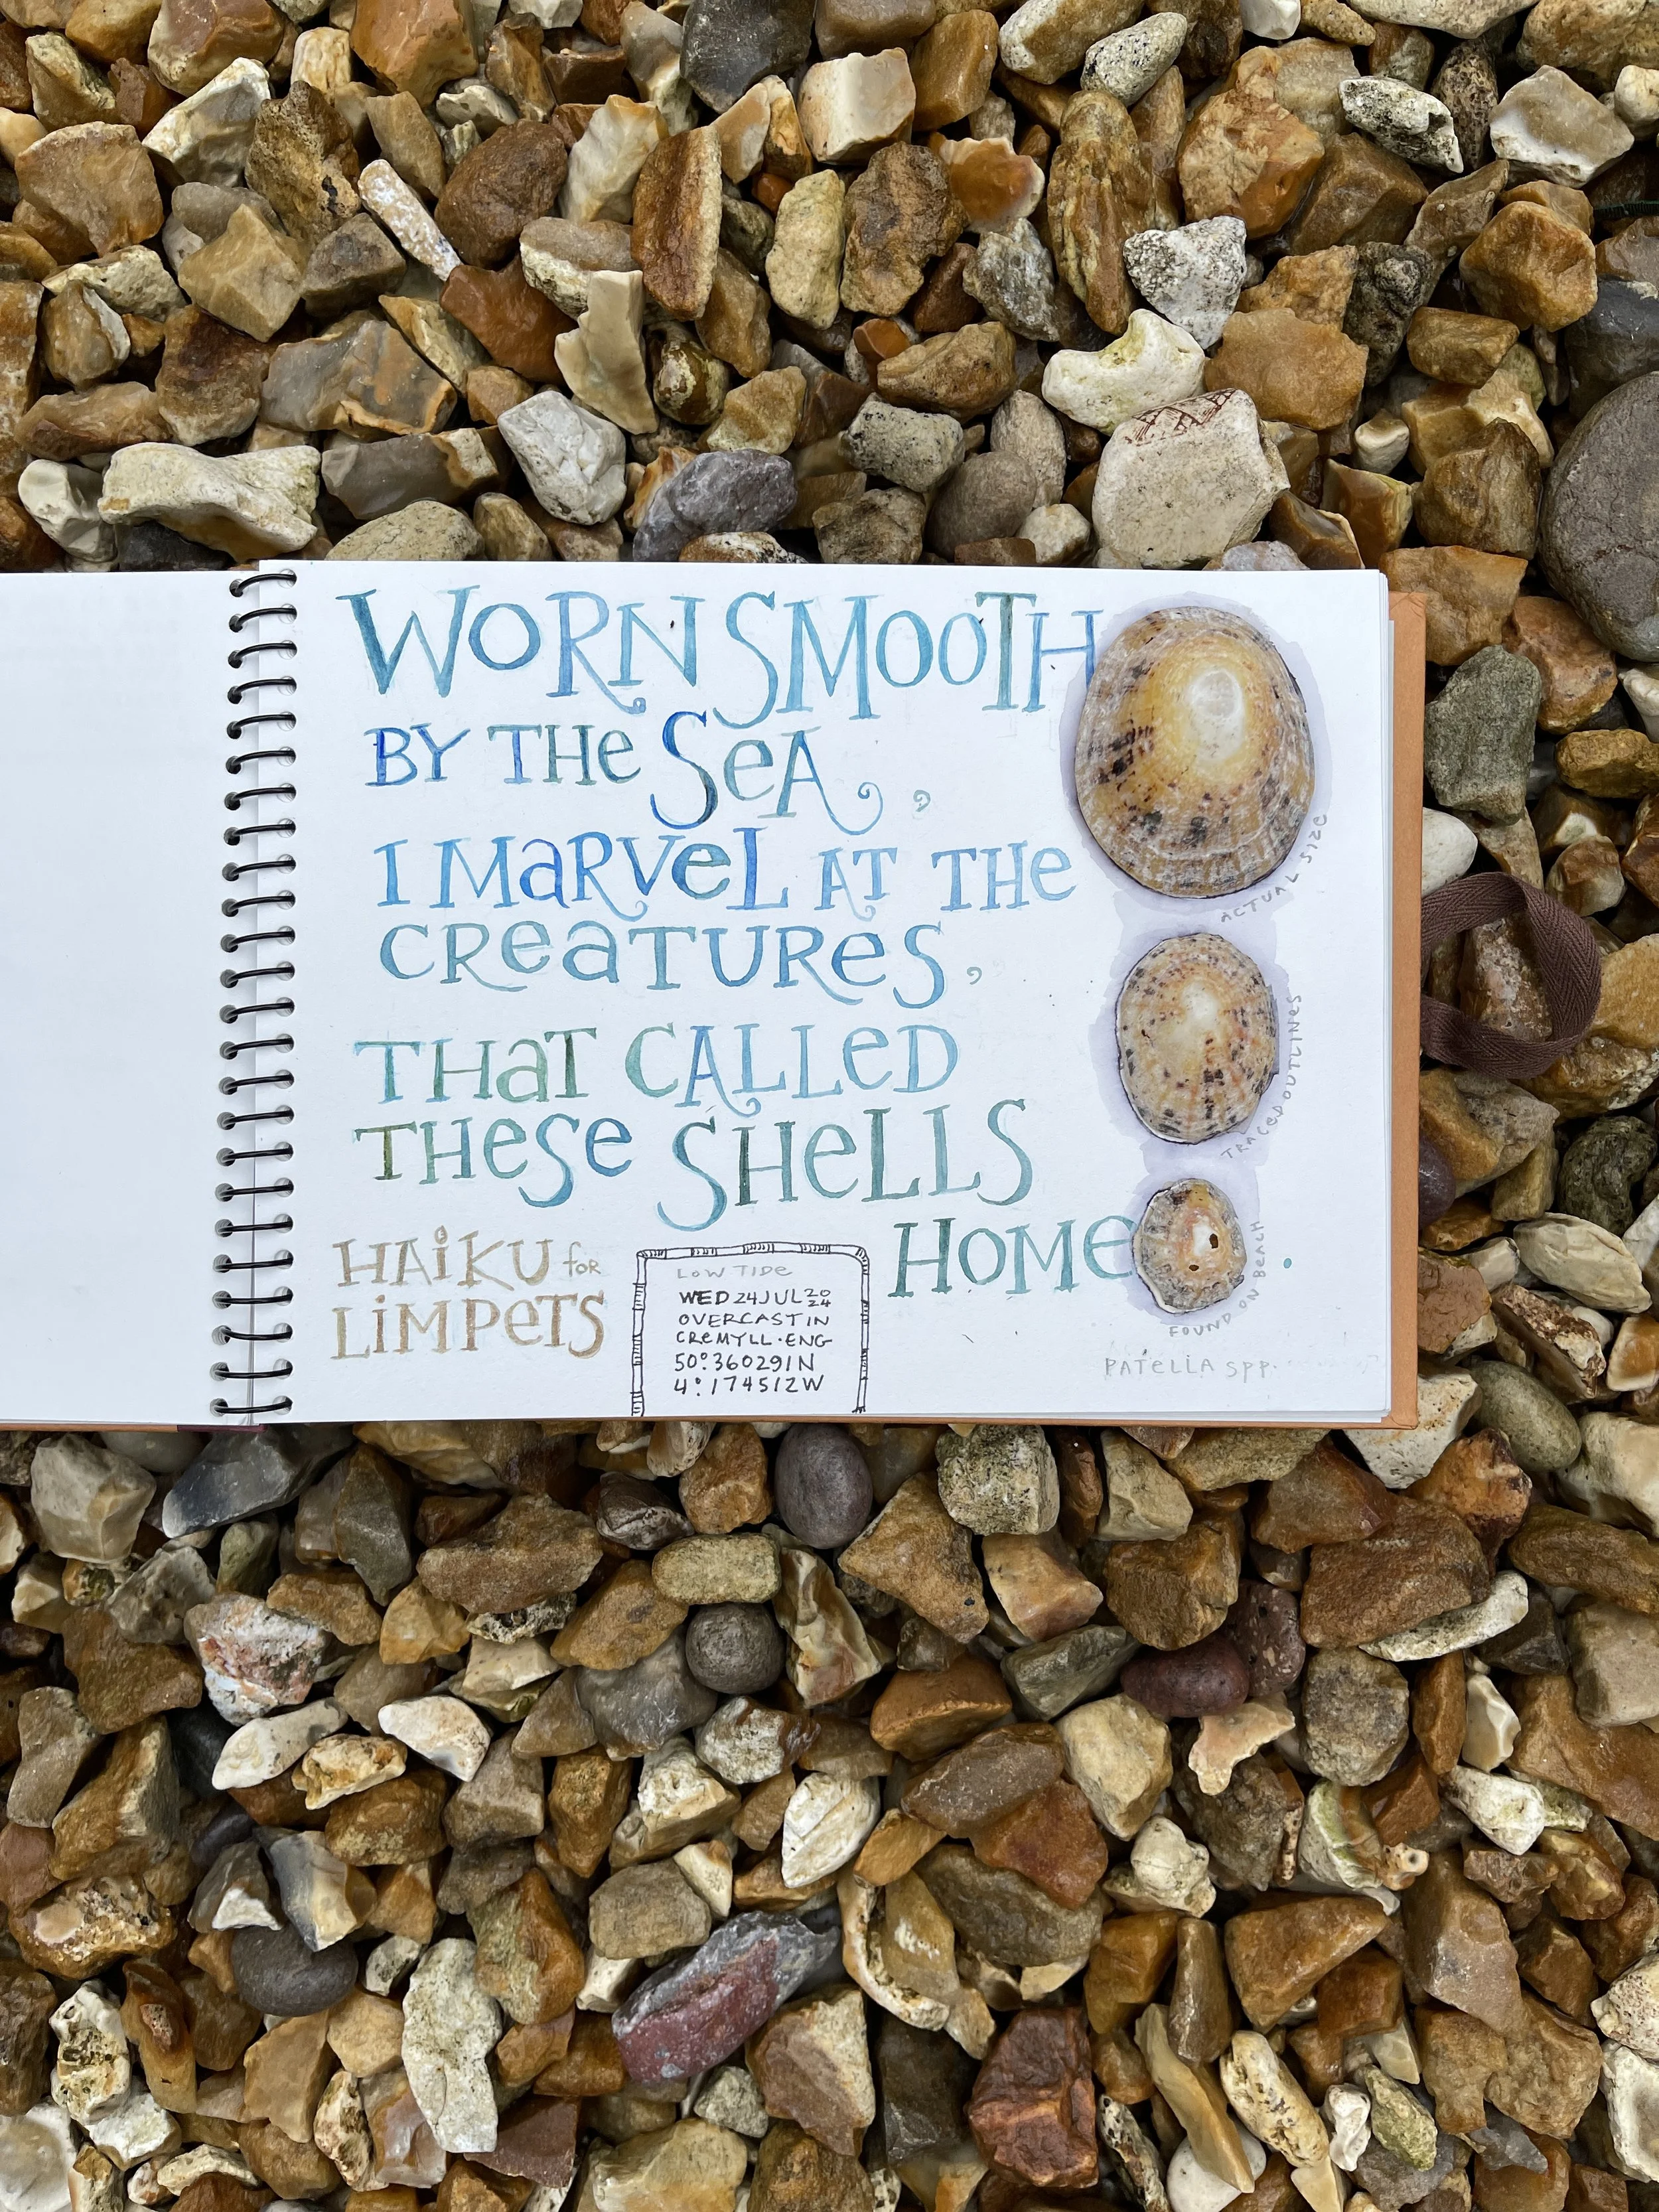 WORN SMOOTH
BY THE SeA,
I MaRVeL AT THe
CReaTURES,
THaT CALLeD
THeSe SHeLLS
HOMe.
HAiKU for
LiMPeTS
LOW TIDe
WED 24 JUL 2024
OVERCAST IN
CReMYLL·ENG
50°.360291N
4°.174512W
ACTUAL SIZe
TRACED OUTLINes
FOUND ON BeACH
PATeLLA spp.